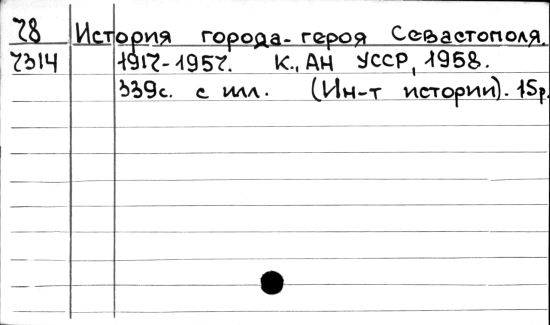 78 История города-героя Севастополя.
7314 1917-1957. К., АН УССР, 1958.
339с. с илл. (Ин-т истории). 15р.